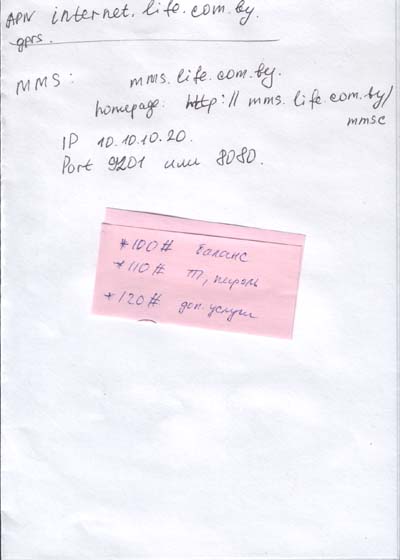 APN internet.life.com.by.
gprs.
MMS: mms.life.com.by.
homepage: http:// mms.life.com.by/
mmsc
IP 10.10.10.20.
Port 9201 или 8080.
*100# баланс
*110# ТП, пароль
*120# доп. услуги